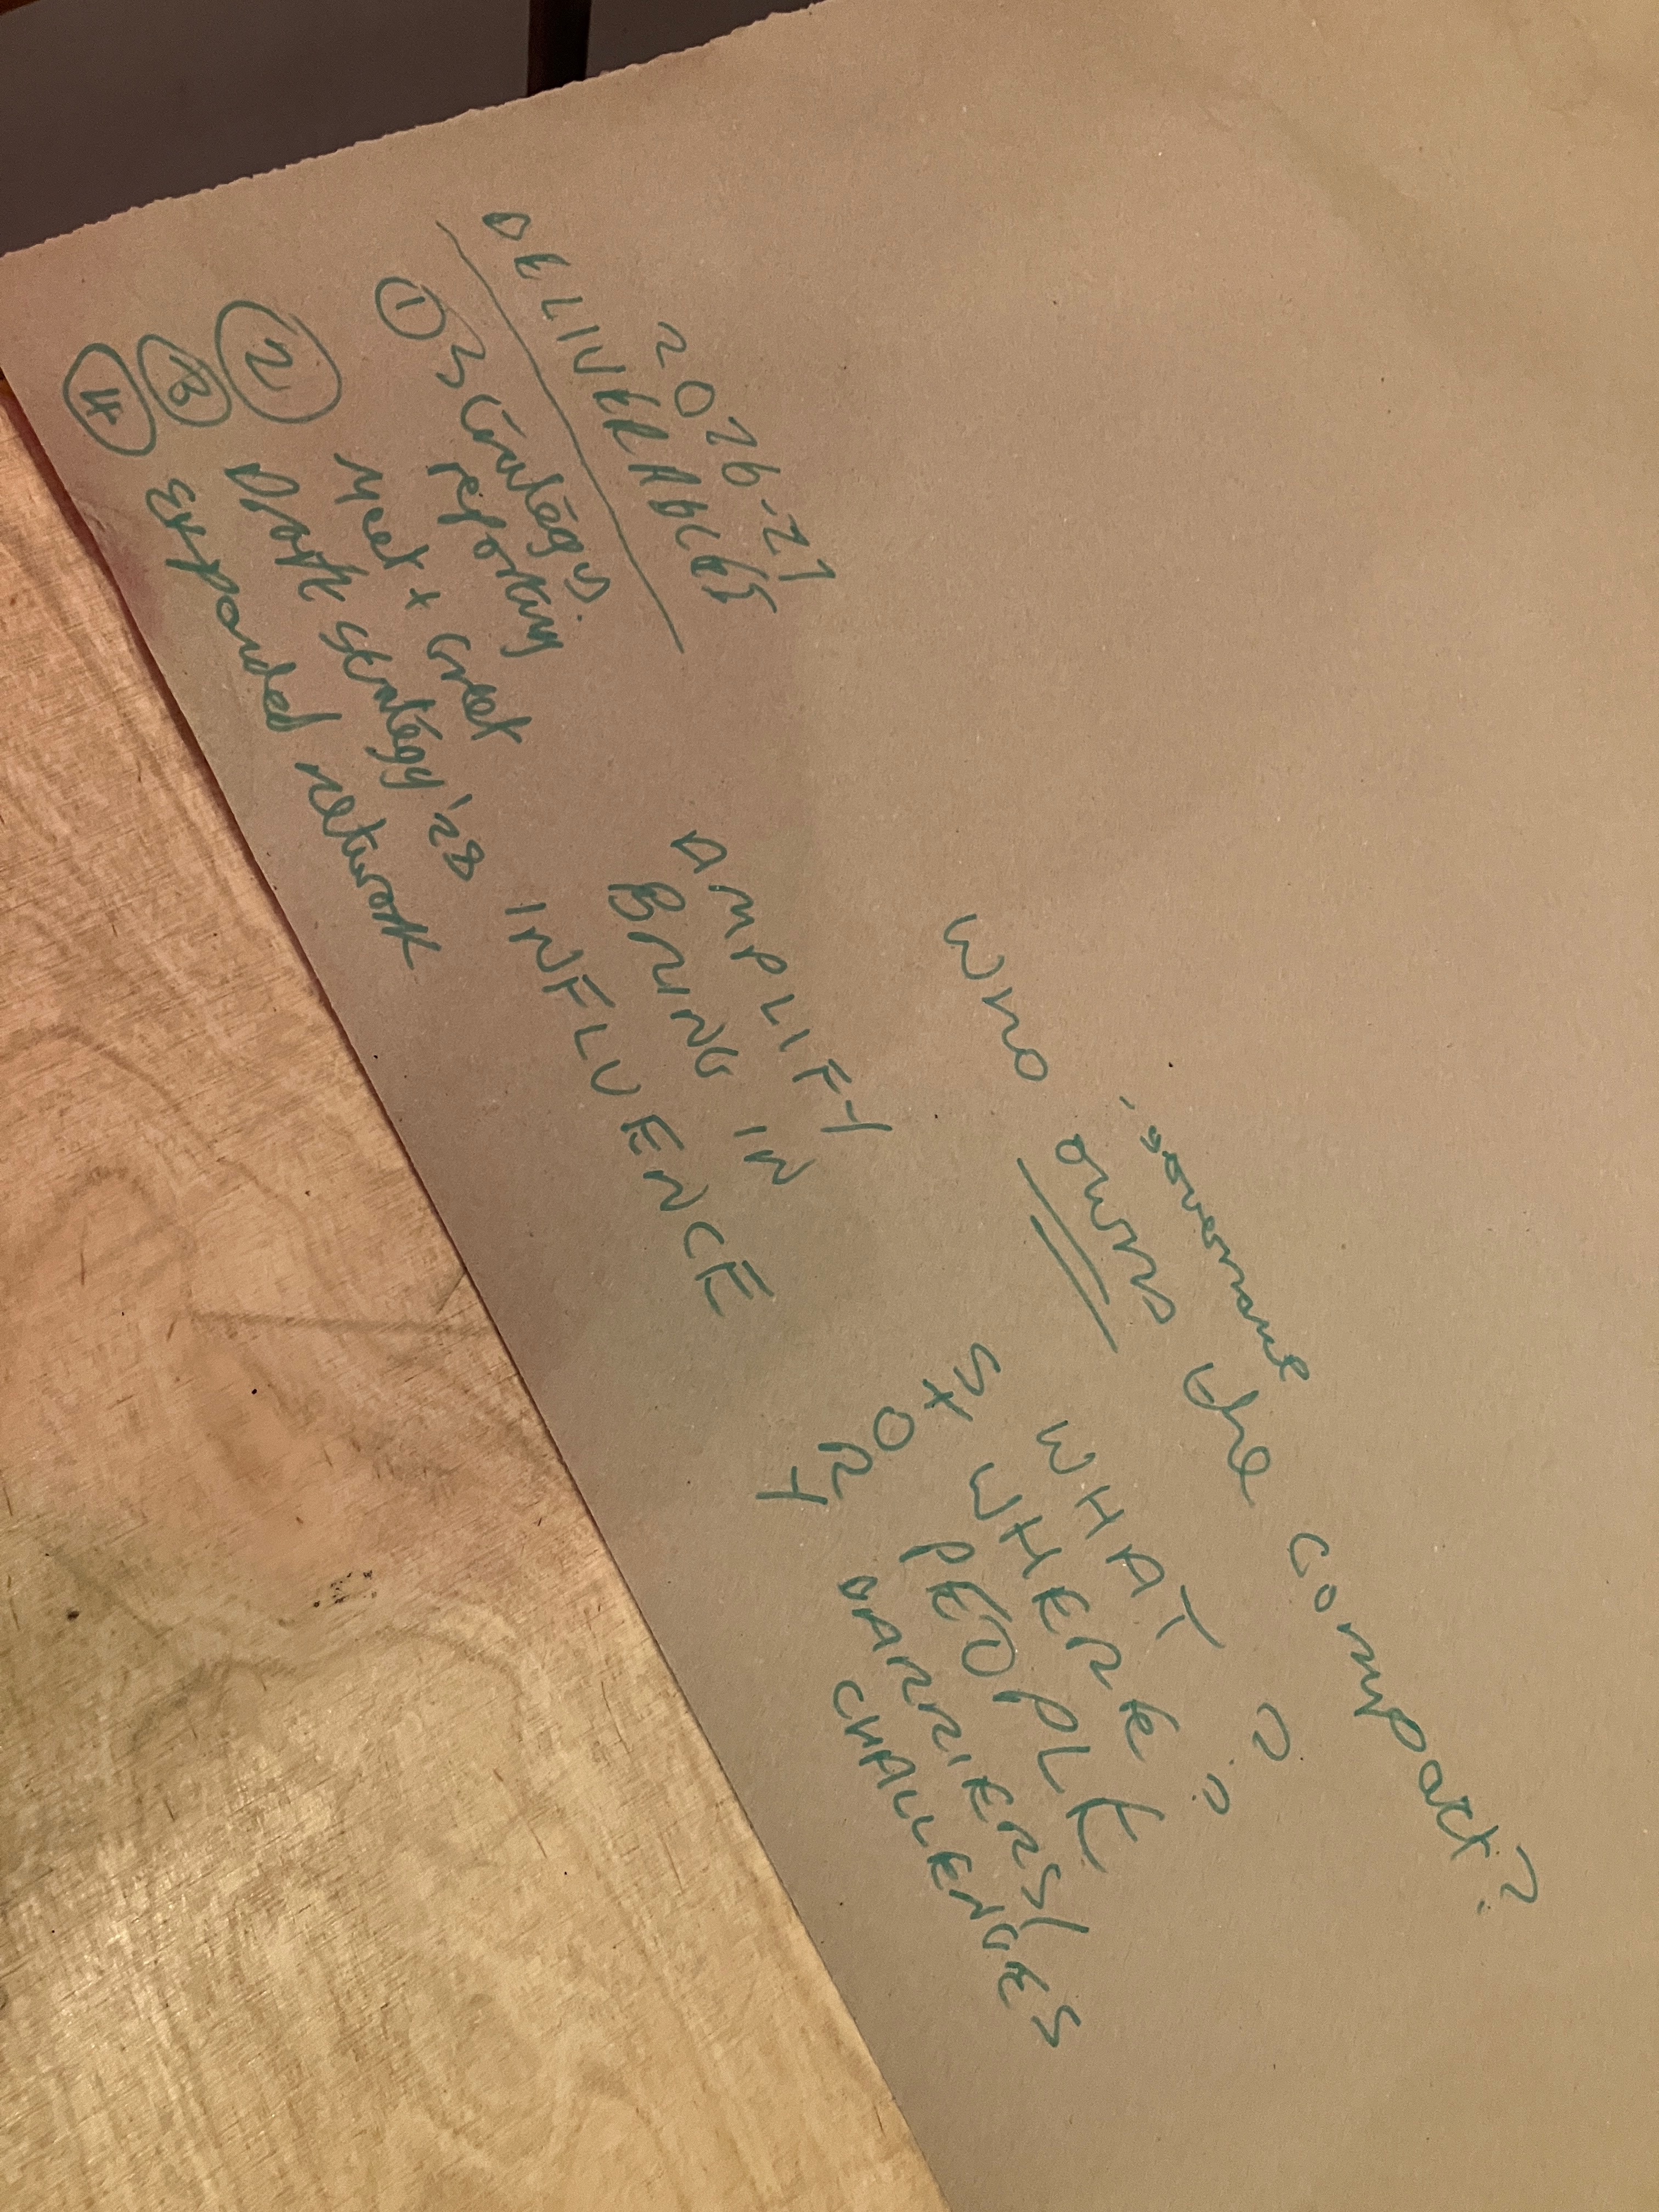 2026-27
DELIVERABLES
① 3 Strategy.
reporting
② Meet + Greet
③ Draft strategy '28
④ expanded network
AMPLIFY
BRING IN
INFLUENCE
governance
Who owns the compact?
WHAT ?
WHERE ?
PEOPLE
BARRIERS/
CHALLENGES
STORY